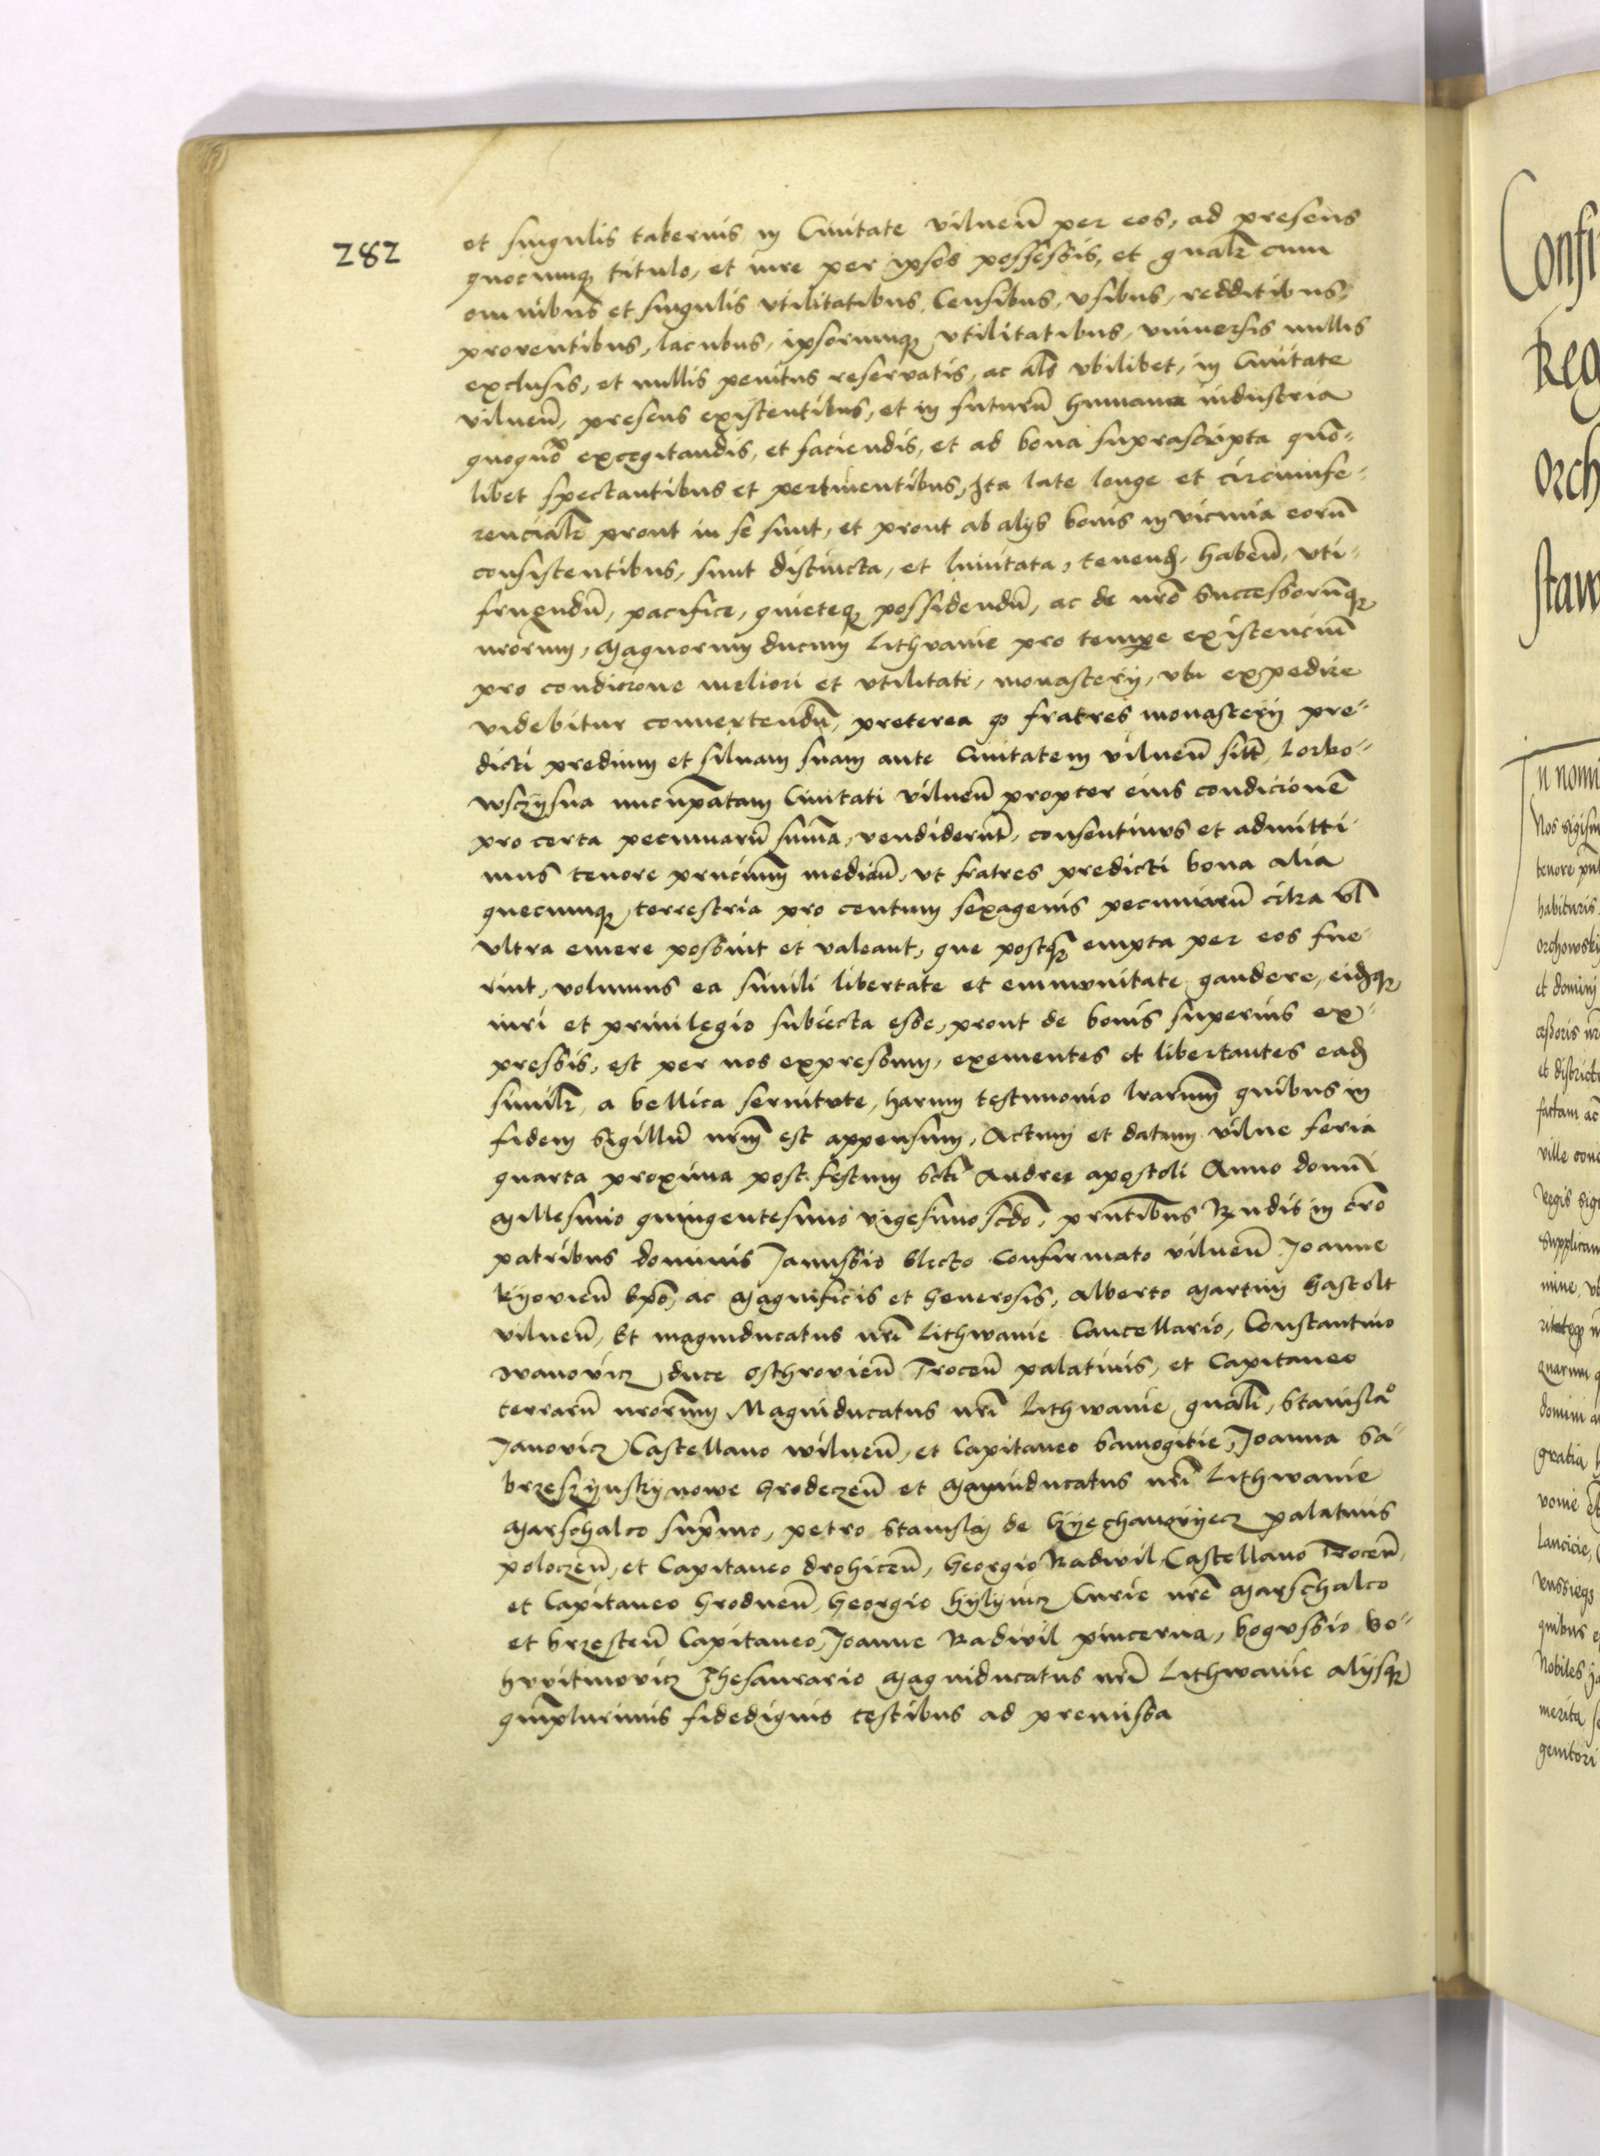 282
et singulis tabernis in Civitate vilnen̄ per eos, ad presens
quocumq; titulo, et iure per ipsos possessis, et gn̄alr cum
omnibus et singulis vtilitatibus, Censibus, vsibus, redditibus,
proventibus, lacubus, ipsorumq; vtilitatibus, vniversis nullis
exclusis, et nullis penitus reservatis, ac als vbilibet, in Civitate
vilnen̄, presens existentibus, et in futurū humana industria
quoquō excogitandis, et faciendis, et ad bona suprascripta quo-
libet spectantibus et pertinentibus, Ita late longe et circumfe-
rencialr prout in se sunt, et prout ab alijs bonis in vicinia eorū
consistentibus, sunt distincta, et limitata, tenend, habend, vti-
fruendū, pacifice, quieteq; possidendū, ac de nr̄o Successorūq;
nrōrum, Magnorum ducum Lithvanie pro tempe existenciū
pro condicione meliori et vtilitati, monasterij, vbi expedire
videbitur convertendū, preterea qo fratres monasterij pre-
dicti predium et silvam suam ante Civitatem vilnen̄ sitā, Lorbo-
wsczysna nuncupatam Civitati vilnen̄ propter eius condicionē
pro certa pecuniarū summa, vendiderunt, consentimus et admitti-
mus tenore prn̄cium mediān, vt fratres predicti bona alia
quecumq; terrestria pro centum sexagenis pecuniarū citra vl
vltra emere possint et valeant, que postq̄ empta per eos fue-
rint, volumus ea simili libertate et emmunitate gaudere, eidq;
iuri et privilegio subiecta esse, prout de bonis superius ex-
pressis, est per nos expressum, exementes et libertantes ead
similr, a bellica servitute, harum testimonio lrārum quibus in
fidem Sigillū nr̄m est appensum, Actum et datum vilne feria
quarta proxima post festum Scti Andree apostoli Anno domini
Millesimo quingentesimo vigesimo scdo, prn̄tibus Rndis in cro
patribus dominis Janussio Electo Confirmato vilnen̄ Joanne
kyovien̄ Epo, ac Magnificis et Generosis, Alberto Martini Gastolt
vilnen̄, Et magniducatus nr̄i Lithwanie Cancellario, Constantino
Ivanovicz duce Osthrovien̄ Trocen̄ palatinis, et Capitaneo
terrarū nrōrum Magniducatus nr̄i Lithwanie gn̄ali, Stanislao
Janovicz Castellano wilnen̄, et Capitaneo Samogitie, Joanna Sa-
brzeszynsky nowe Grodeczen̄ et Magniducatus nr̄i Lithwanie
Marschalco suprmo, petro Stanislai de Kyechanovyecz palatinis
poloczen̄, et Capitaneo drohicen̄, Georgio Radivil Castellano Trocen̄,
et Capitaneo Grodnen̄, Georgio Hylynicz Curie nr̄e Marschalco
et brzesten̄ Capitaneo, Joanne Radivil pincerna, bogussio bo-
hvvitinovicz Thesaurario Magniducatus nr̄i Lithwanie alijsq;
qmplurimis fidedignis testibus ad premissa
Confi
Reg
orch
staw
In nomi
Nos sigism
tenore
habituris
orchowski
et domini
et district
factam ac
ville
Regis sig
supplican
quarum
domini
gratia
Lancicie,
quibus
Nobiles
merita
genitori